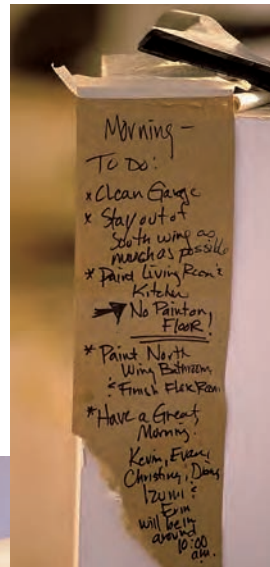 Morning -
To Do:
* Clean Garage
* Stay out of
South wing as
much as possible
* Paint Living Room &
Kitchen
→ No Paint on
FLOOR!
* Paint North
Wing Bathroom,
& Finish Flex Room
* Have a Great
Morning.
Kevin, Evan,
Christina, Doug
Izumi &
Erin
will be in
around
10:00
am.